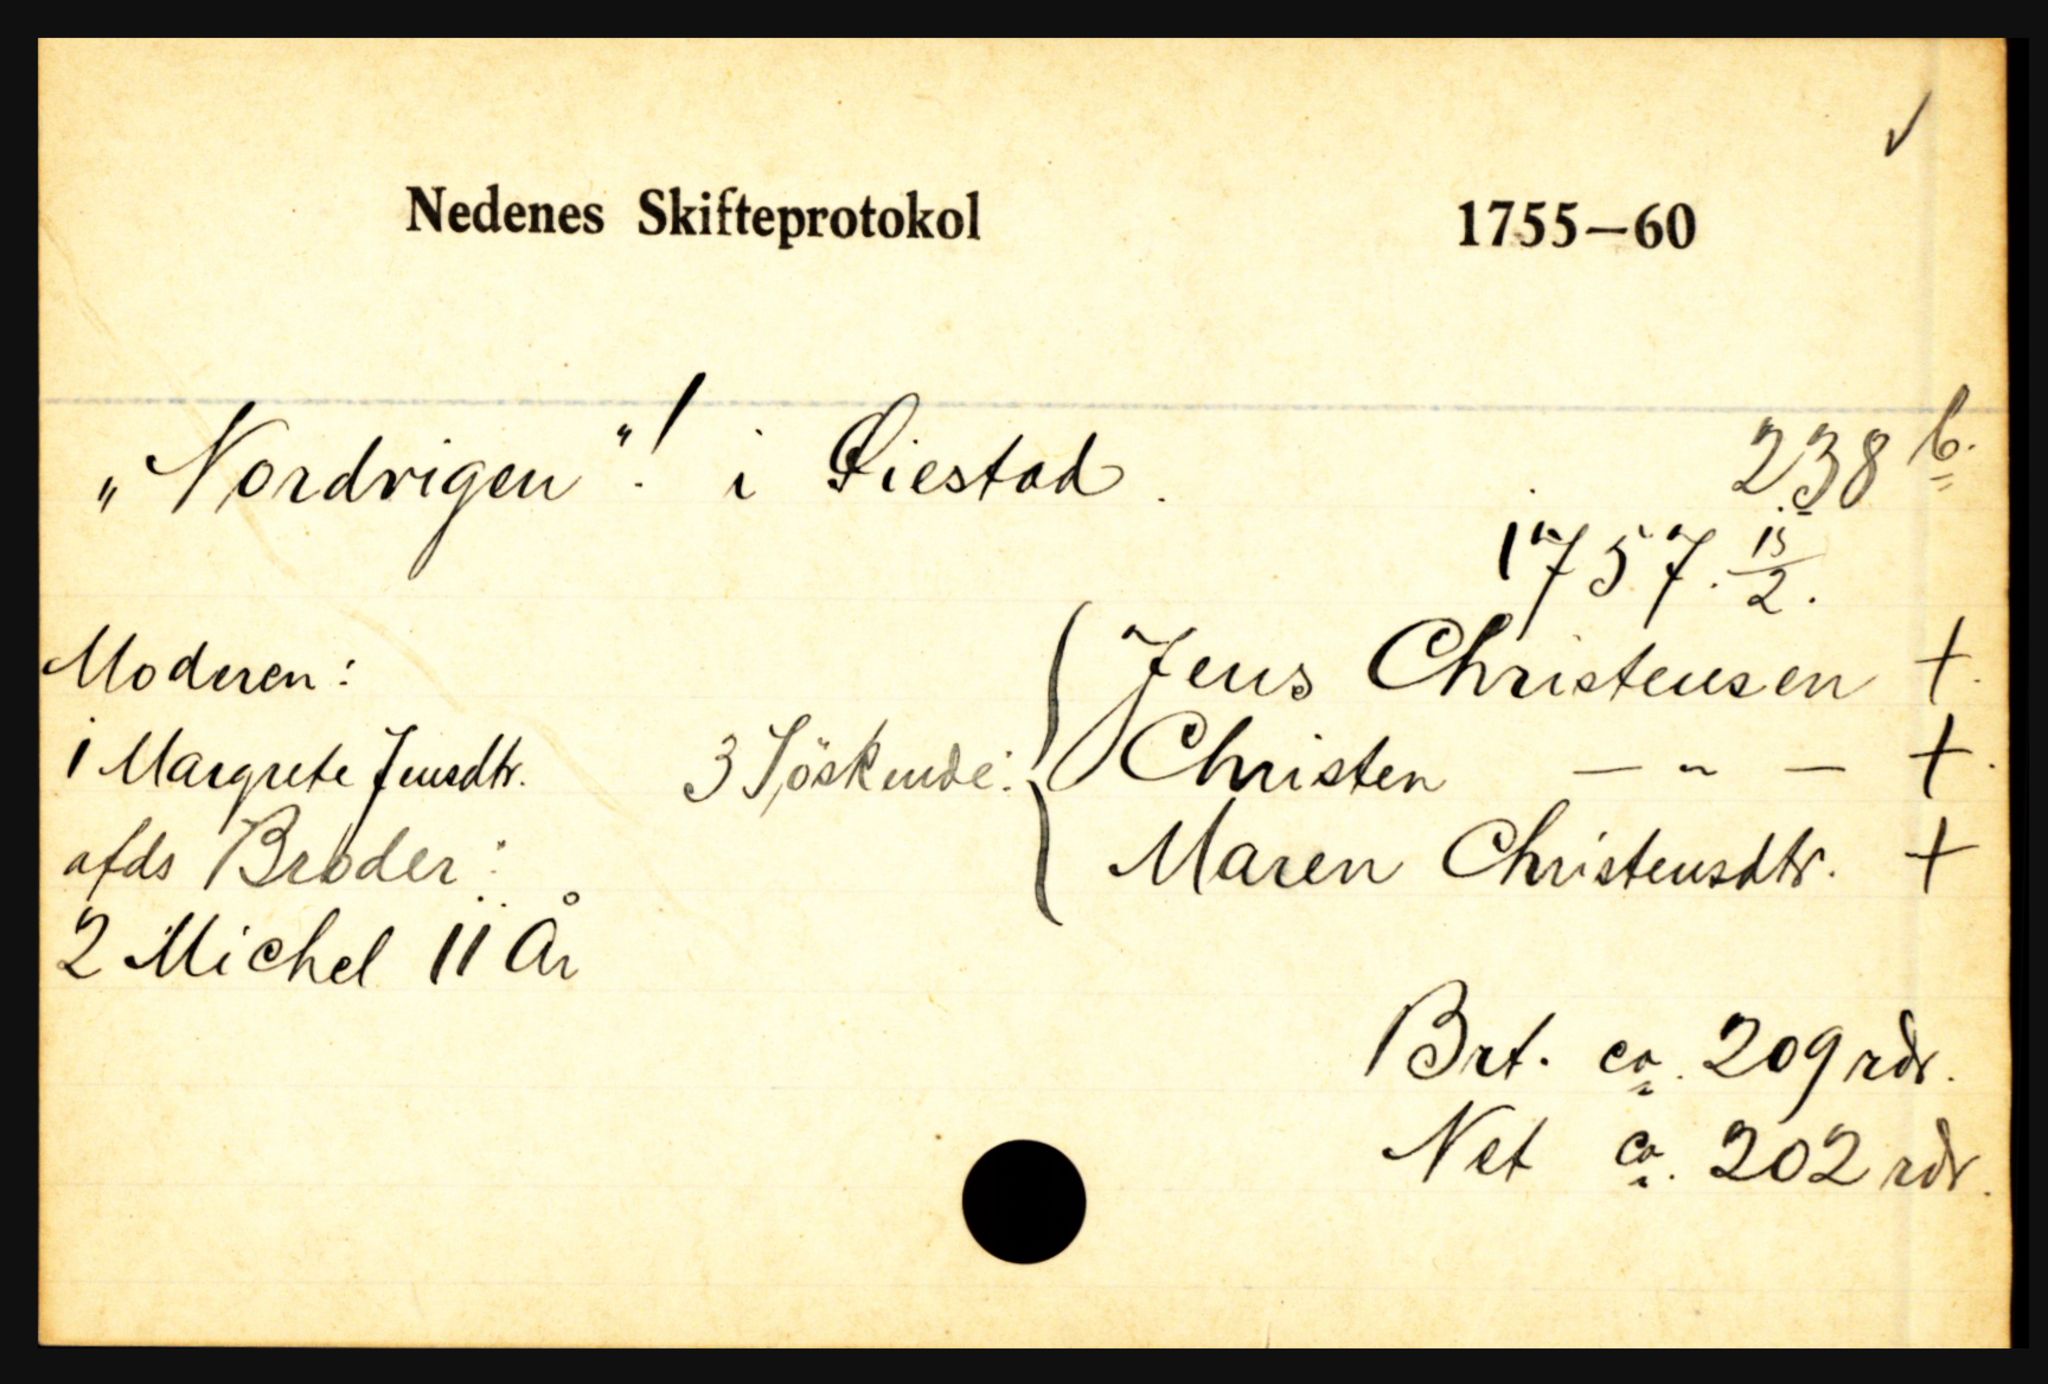 ✓
Nedenes Skifteprotokol 1755—60
„Nordrigen"! i Øiestad. 238 b.
1757. 15/2.
Moderen: Jens Christensen +.
1 Margrete Jensdtr. 3 Söskende: Christen — " — +.
afds Broder: Maren Christensdtr. +
2 Michel 11 År
Brt. ca. 209 rdr.
Net ca. 202 rdr.